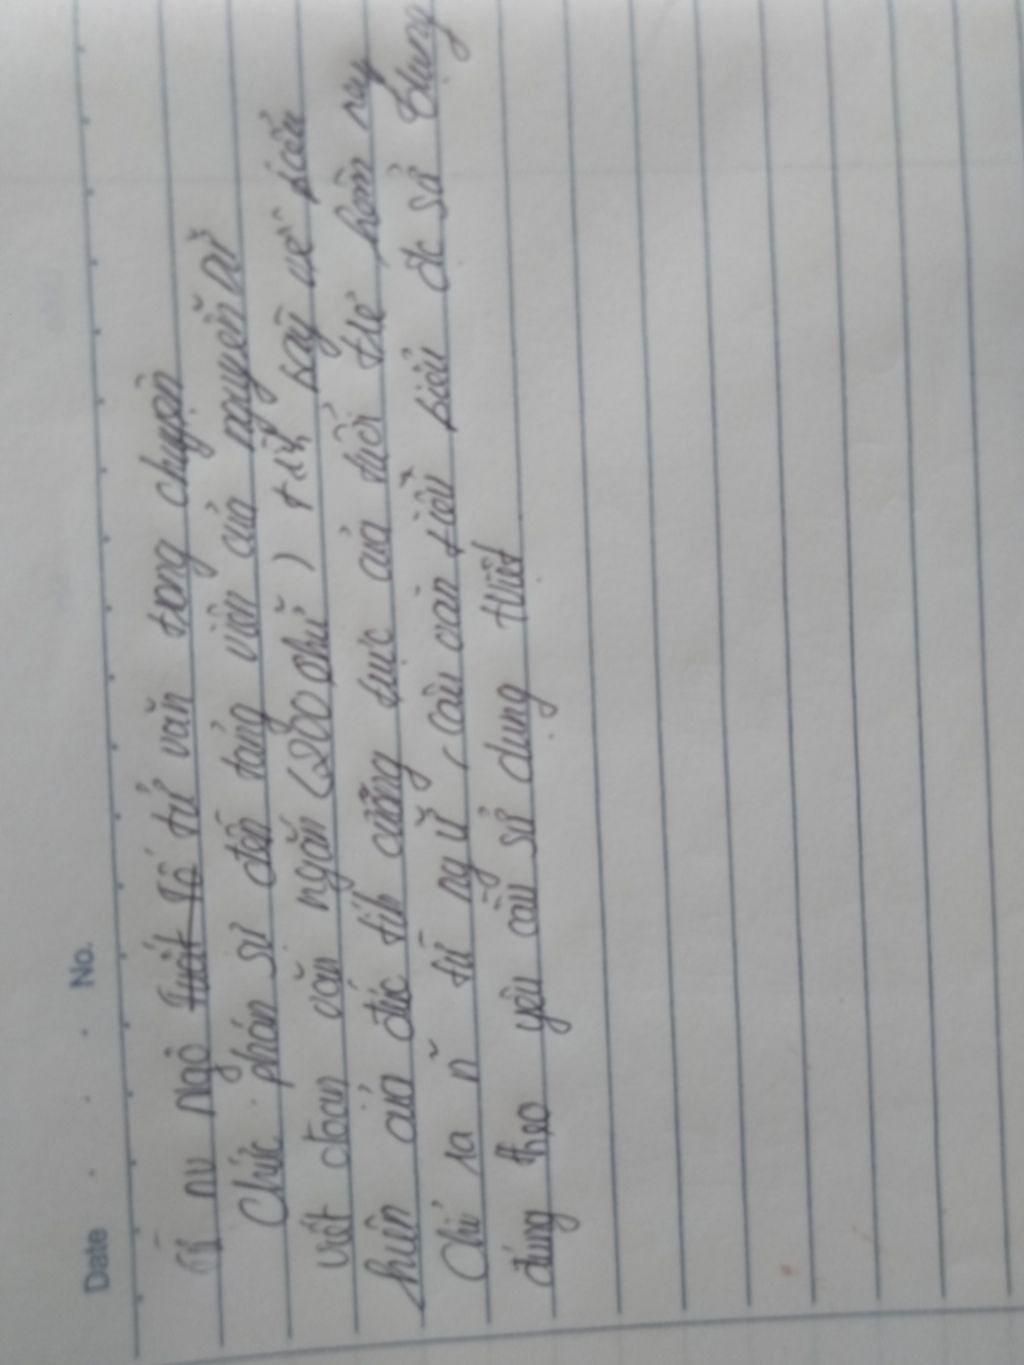 Date . . No.
nv Ngô Tuất Tố tử văn trong chuyện
Chức phán sự đền tảng viên của nguyễn Dữ
viết đoan văn ngắn (200 chữ) trìh bày về biểu
hiện của đức tíh cương trực của tuổi trẻ hôm nay
Chỉ ra n~ từ ngữ, câu văn tiêu biểu đc sử dụng
đúng theo yêu cầu sử dụng